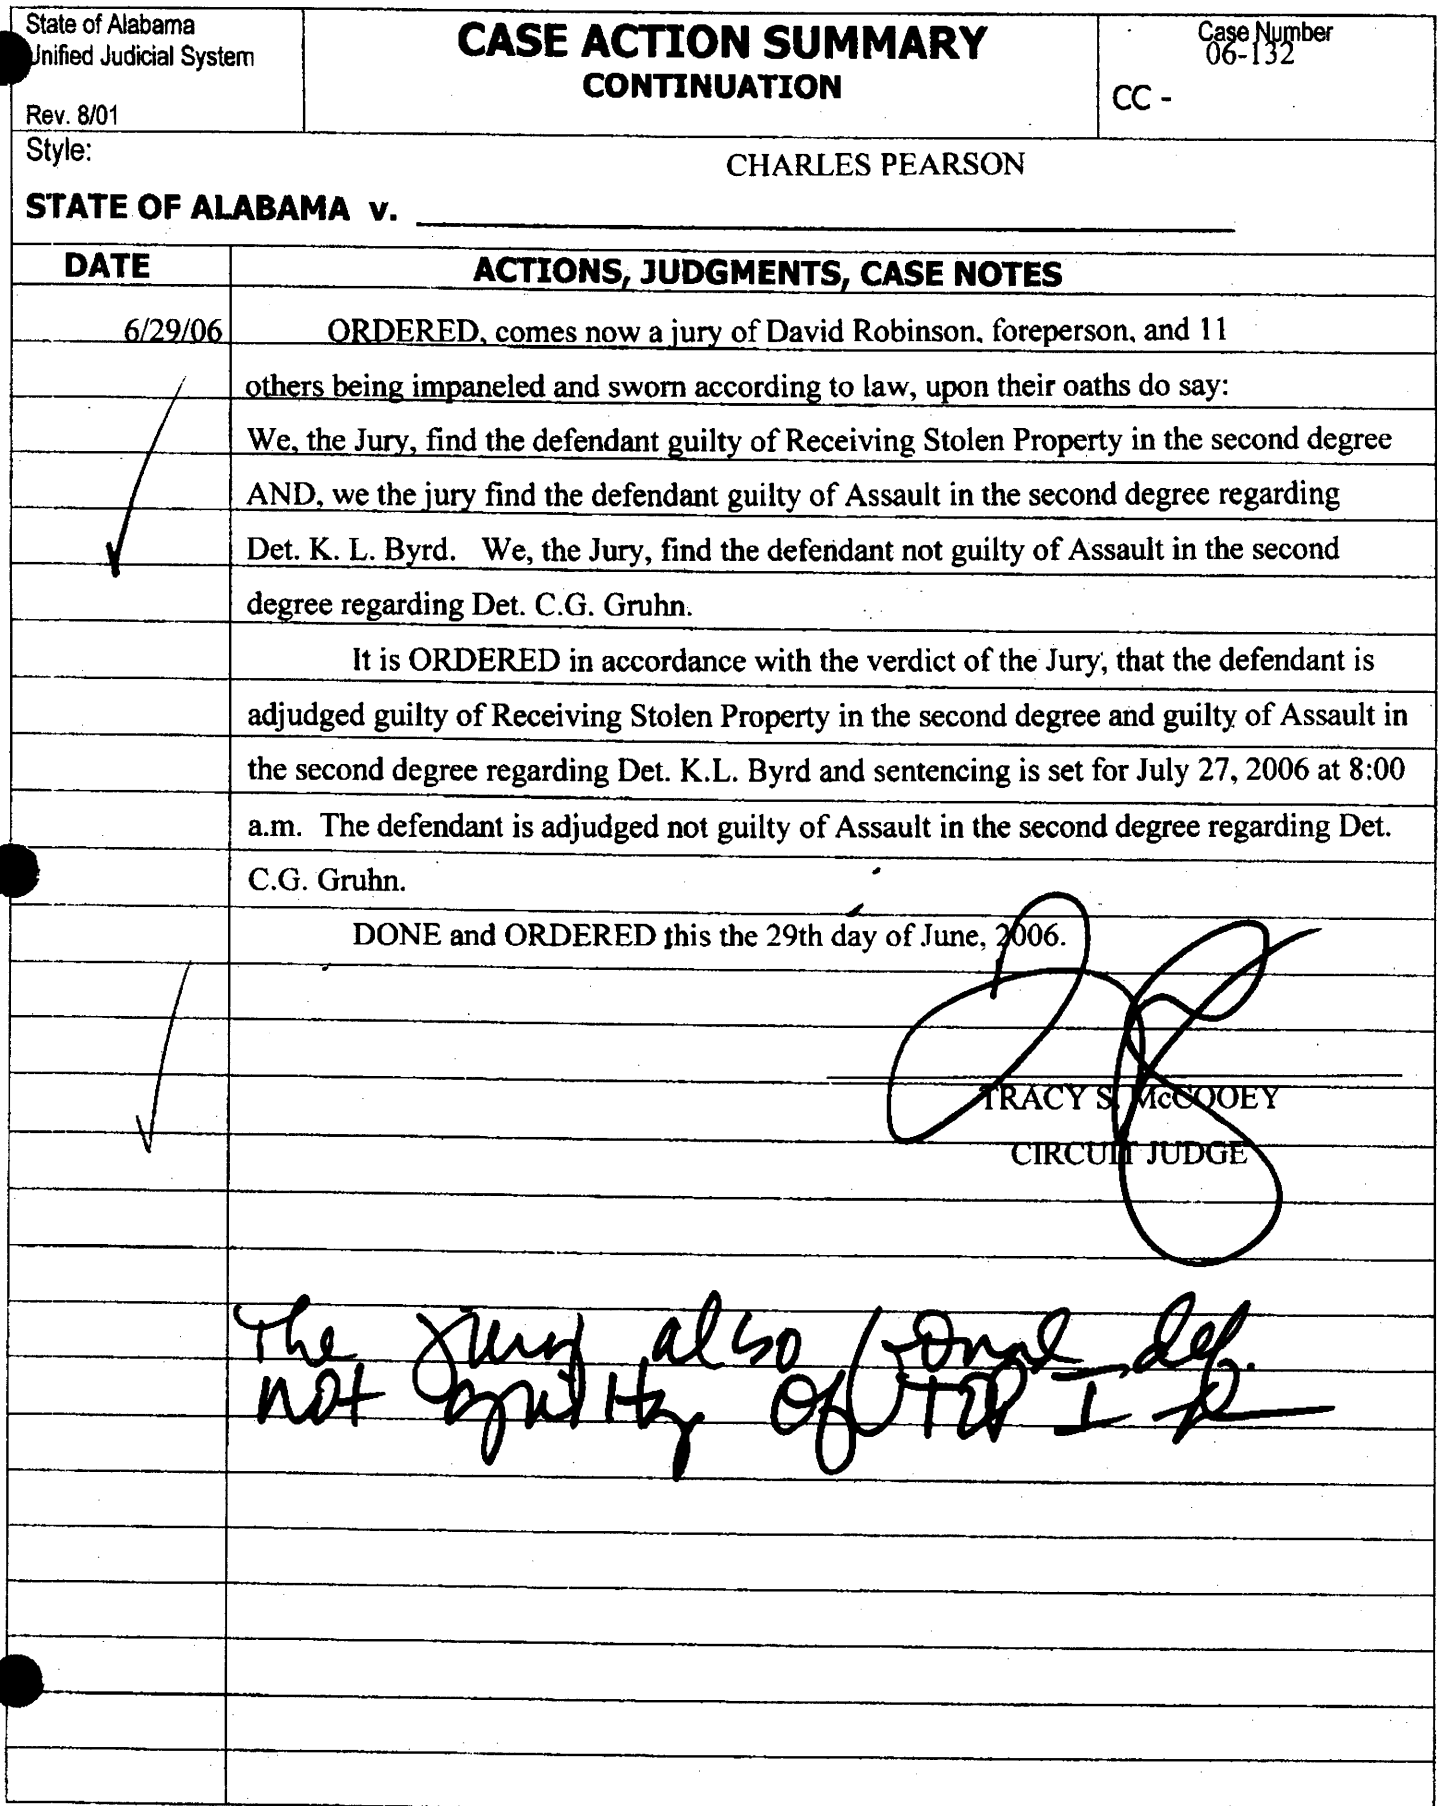 State of Alabama
Unified Judicial System
Rev. 8/01
CASE ACTION SUMMARY
CONTINUATION
Case Number
06-132
CC -
Style:
CHARLES PEARSON
STATE OF ALABAMA v.
DATE
ACTIONS, JUDGMENTS, CASE NOTES
6/29/06
ORDERED, comes now a jury of David Robinson, foreperson, and 11
others being impaneled and sworn according to law, upon their oaths do say:
We, the Jury, find the defendant guilty of Receiving Stolen Property in the second degree
AND, we the jury find the defendant guilty of Assault in the second degree regarding
Det. K. L. Byrd. We, the Jury, find the defendant not guilty of Assault in the second
degree regarding Det. C.G. Gruhn.
It is ORDERED in accordance with the verdict of the Jury, that the defendant is
adjudged guilty of Receiving Stolen Property in the second degree and guilty of Assault in
the second degree regarding Det. K.L. Byrd and sentencing is set for July 27, 2006 at 8:00
a.m. The defendant is adjudged not guilty of Assault in the second degree regarding Det.
C.G. Gruhn.
DONE and ORDERED this the 29th day of June, 2006.
TRACY S. McCOOEY
CIRCUIT JUDGE
The jury also found def.
not guilty of TOP I